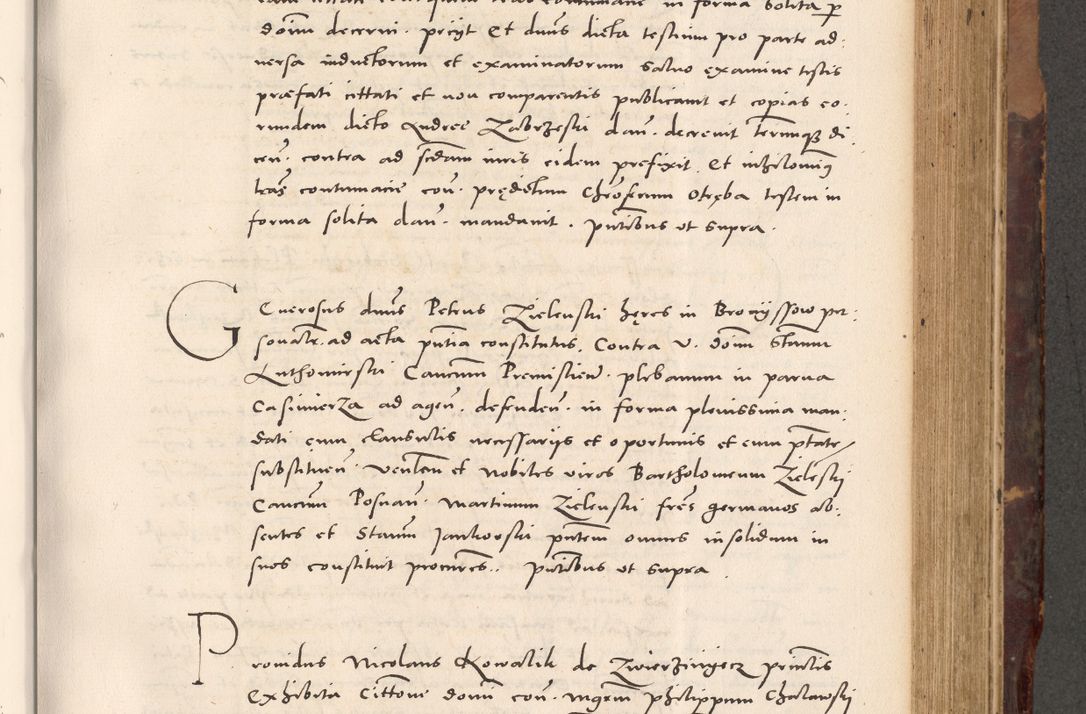 domi decerni. petiit Et dnus dicta testium pro parte ad:
versa inductorum et examinatorum salvo examine testis
præfati cittati et non comparentis publicavit et copias eo:
rundem dicto Andree Zabrzeski dan. decrevit terminumque di
cen. contra ad scdam iuris eidem prefixit. Et nihilominus
tras contumacie con. prędictum Chroserum Otręba testem in
forma solita dan. mandavit. pntibus ut supra.
Generosus dnus Petrus Zielenski hęres in Broniyssow per:
sonalr. ad acta pntia constitutus. Contra V. dom Stanm
Luthomirski Cancum Premislien. plebanum in parva
Casimierza ad agen. defenden. in forma plenissima man:
dati cum clausulis necessariis et oportunis et cum ptate
substituen. Venlem et Nobiles viros Bartholomeum Zieleski
Cancum Posnan. Martinum Zielenski fres germanos ab:
sentes et Stanm Jankowski pntem omnes insolidum in
suos constituit procures. pntibus ut supra.
Providus Nicolaus Kowalik de Zwierzinyecz principalis
exhibita Cittone domi con. mgrum philippum Chalawski